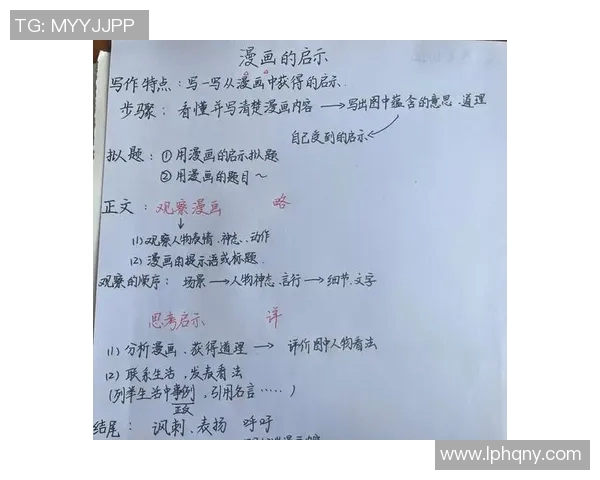 TG: MYYJJPP
漫画的启示
写作特点：写一写从漫画中获得的启示.
步骤：看懂并写清楚漫画内容 → 写出图中蕴含的意思.道理
自己受到的启示
拟人题：①用漫画的启示拟题
②用漫画的题目～
正文：观察漫画 略
(1)观察人物表情.神态.动作
(2)漫画的提示语或标题.
观察的顺序：场景→人物神态.言行→细节.文字
思考启示 详
(1)分析漫画.获得道理 → 评价图中人物看法
(2)联系生活,发表看法
(列举生活中事例,引用名言……)
正反
结尾：讽刺.表扬 呼吁
www.lphqny.com